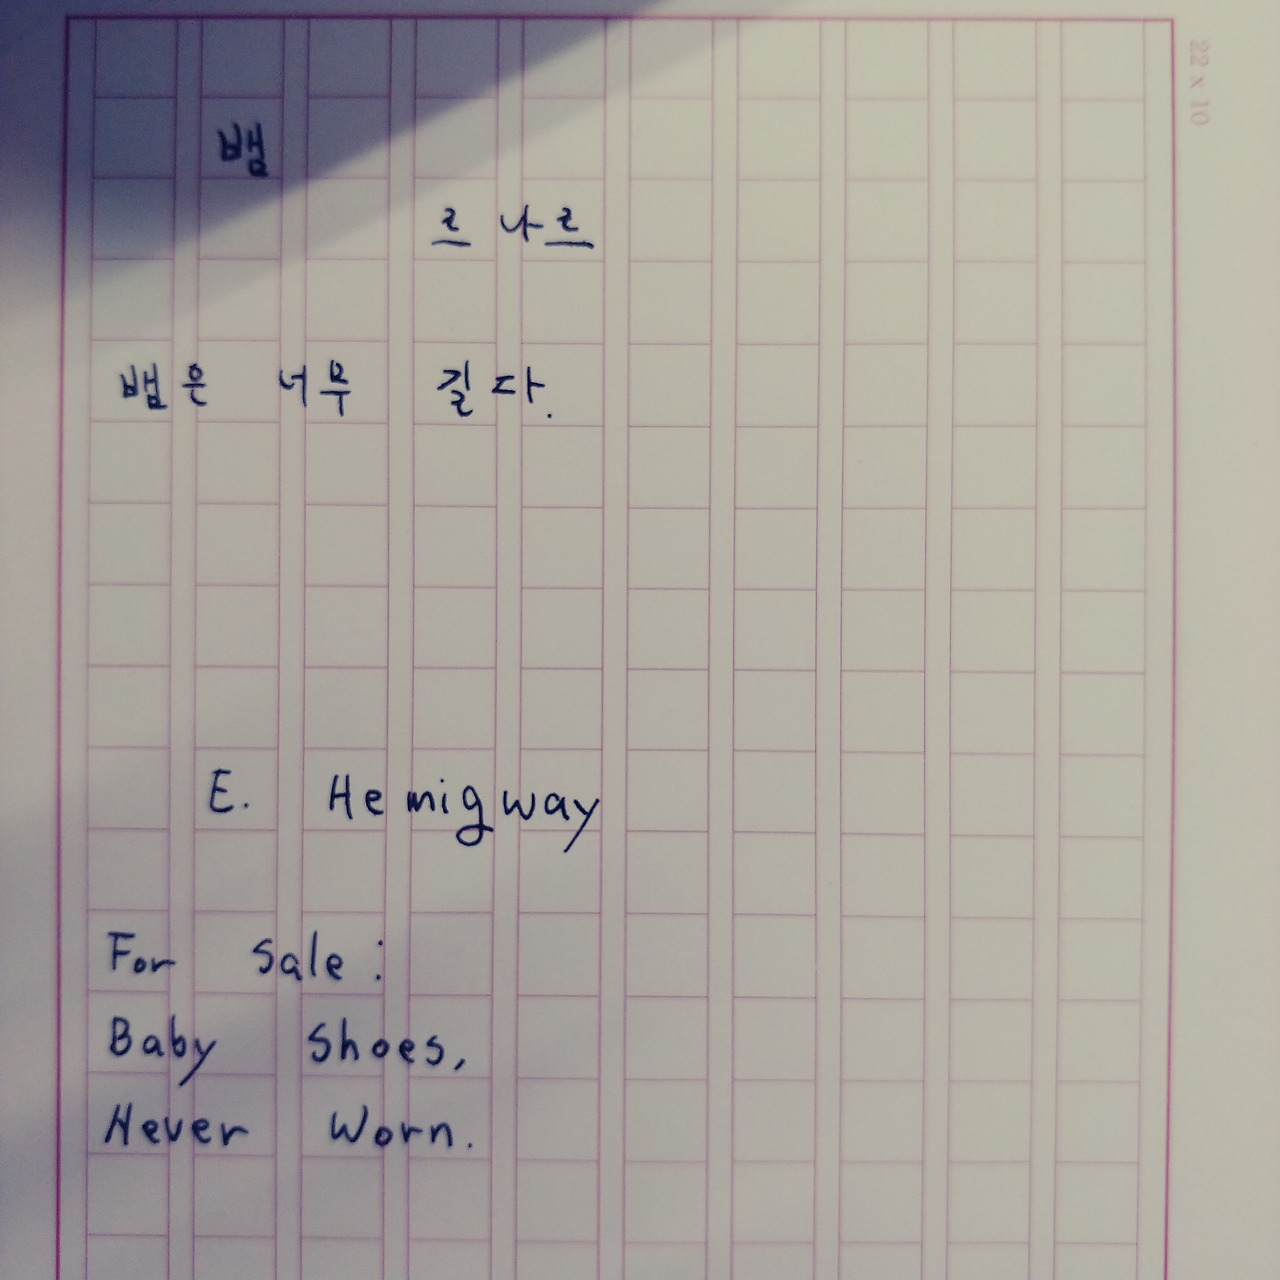 뱀
르나르
뱀은 너무 길다.
E. Hemigway
For Sale:
Baby Shoes,
Never Worn.
22 x 10